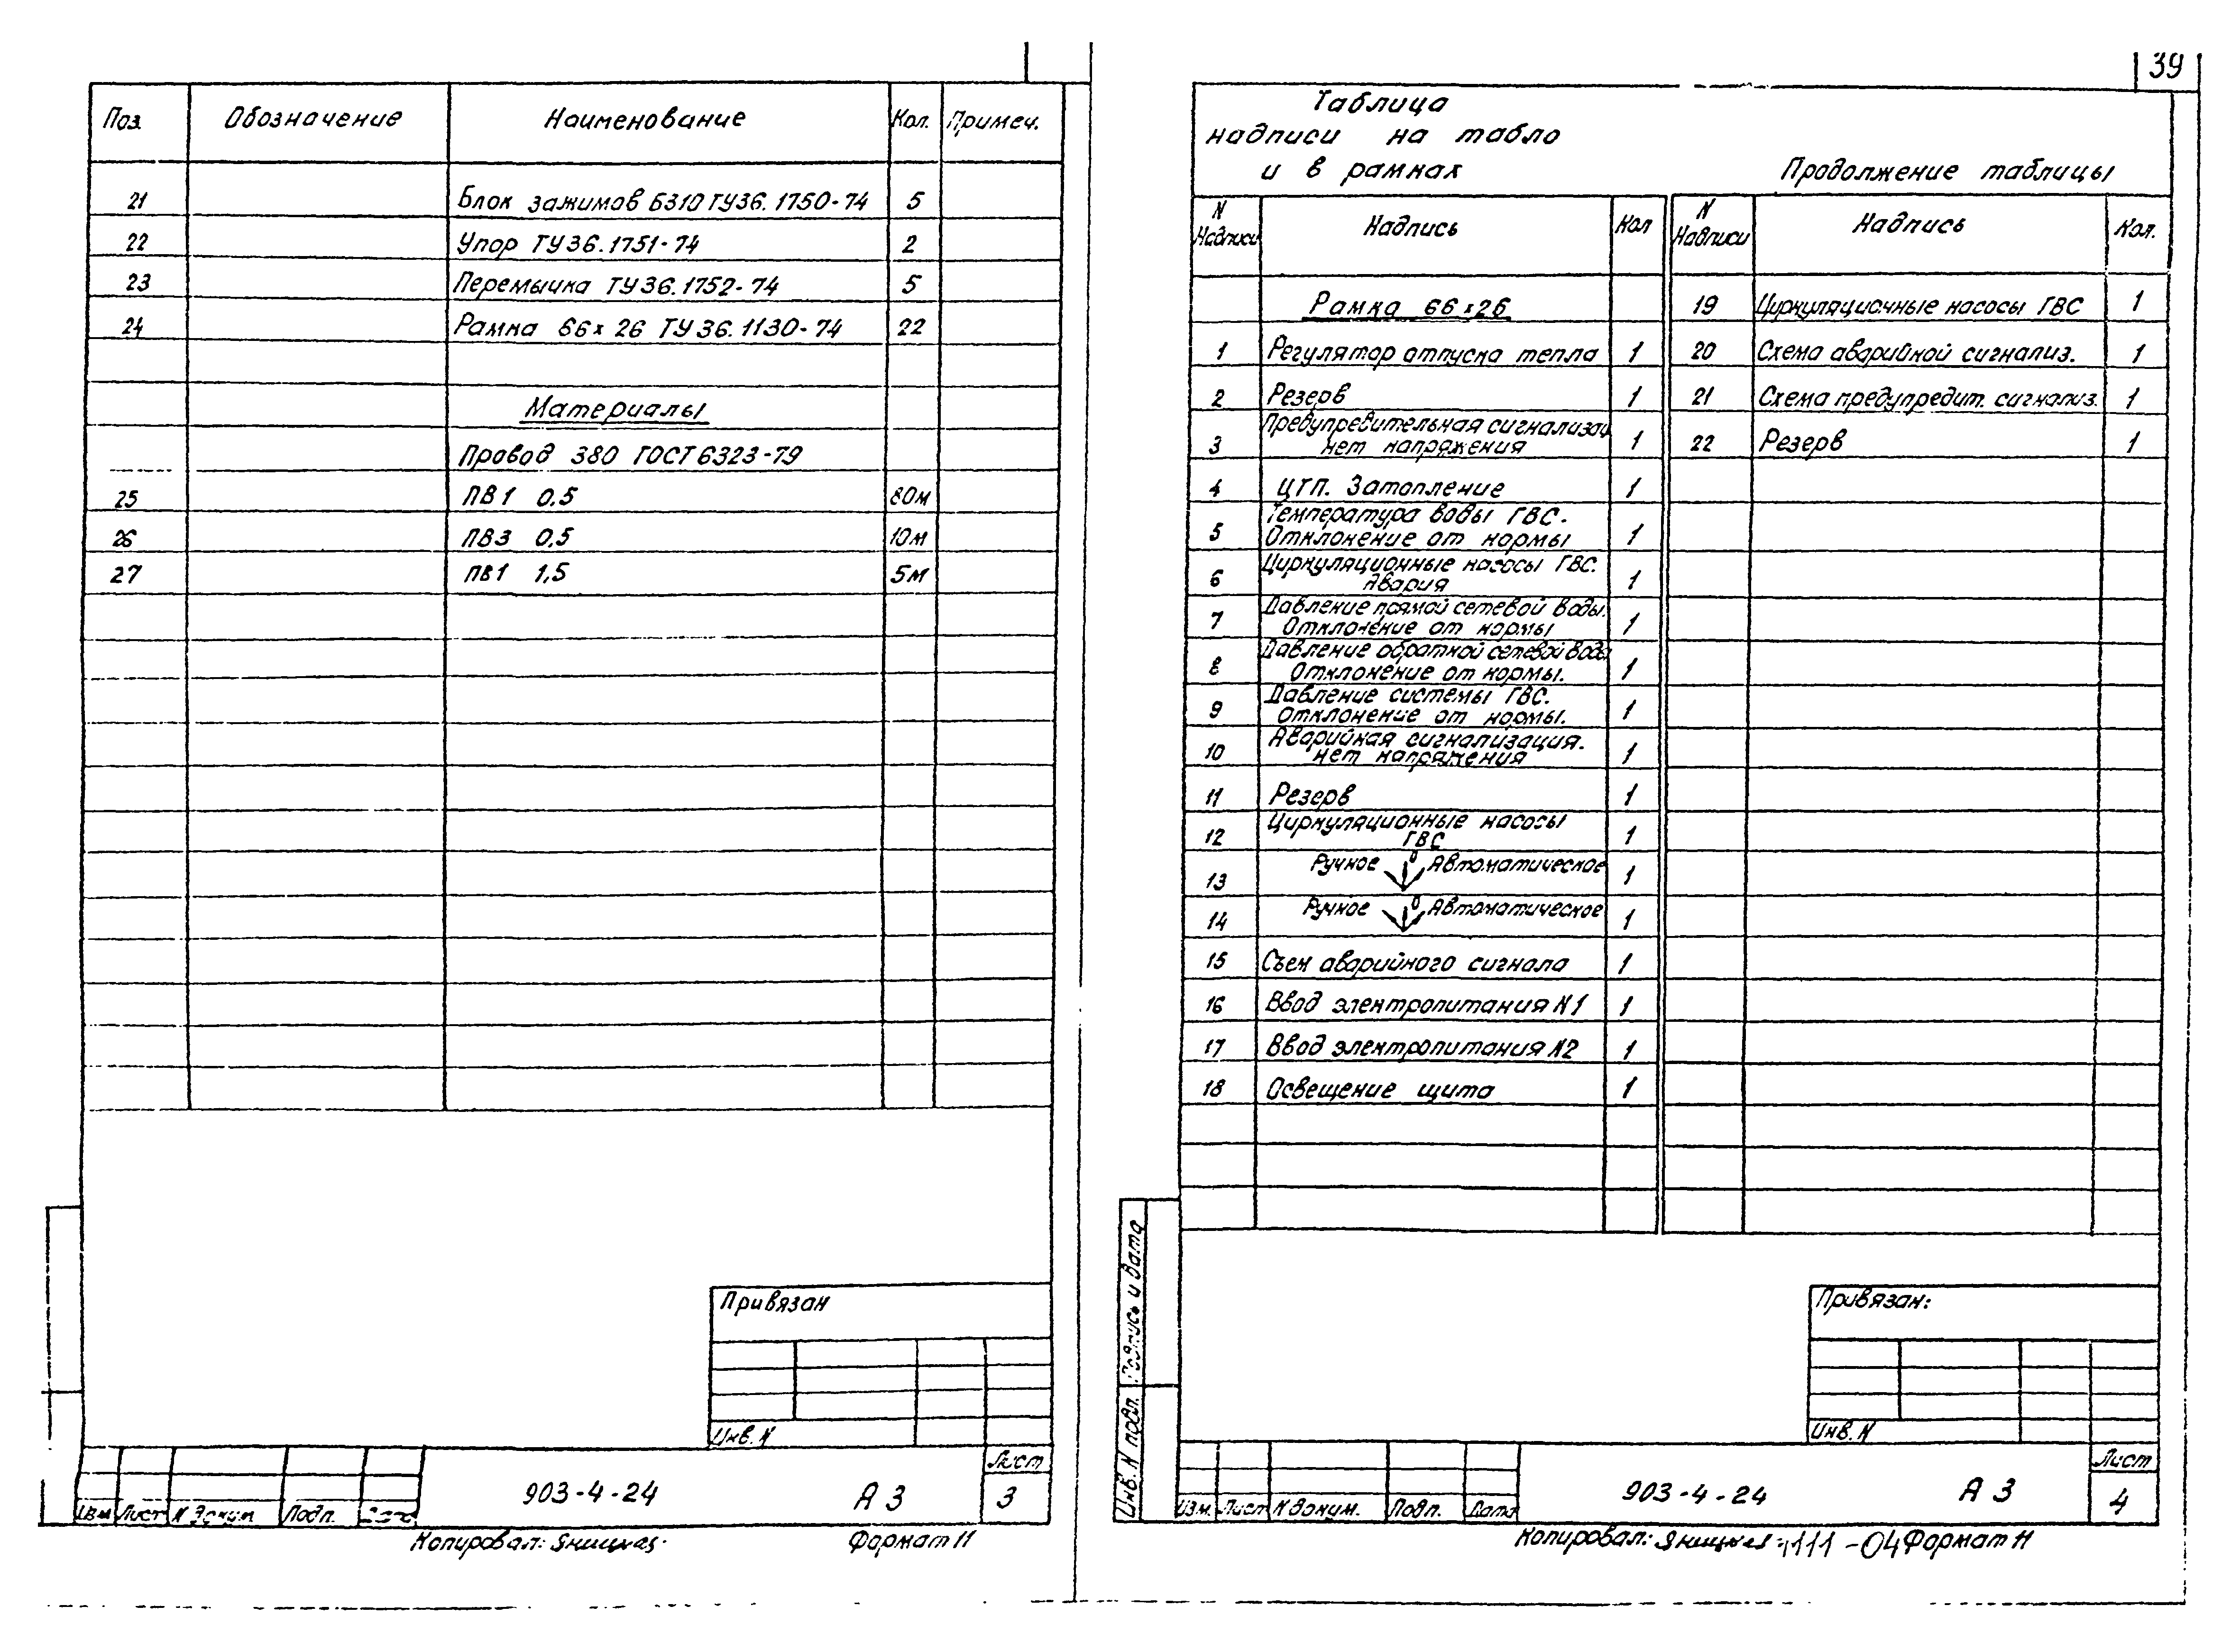 39
Поз. Обозначение Наименование Кол. Примеч.
21 Блок зажимов Б310 ТУ36.1750-74 5
22 Упор ТУ36.1751-74 2
23 Перемычка ТУ36.1752-74 5
24 Рамка 66х26 ТУ36.1130-74 22
Материалы
Провод 380 ГОСТ 6323-79
25 ПВ1 0,5 80м
26 ПВ3 0,5 10м
27 ПВ1 1,5 5м
Привязан
Инв. N
Изм Лист N докум. Подп. Дата
903-4-24 А3
Лист
3
Копировал: Яницкая. Формат 11
Таблица
надписи на табло
и в рамках
Продолжение таблицы
N Надписи Надпись Кол N Надписи Надпись Кол.
Рамка 66х26
1 Регулятор отпуска тепла 1
2 Резерв 1
3 Предупредительная сигнализац
нет напряжения 1
4 ЦТП. Затопление 1
5 Температура воды ГВС.
Отклонение от нормы 1
6 Циркуляционные насосы ГВС.
Авария 1
7 Давление прямой сетевой воды.
Отклонение от нормы 1
8 Давление обратной сетевой воды
Отклонение от нормы. 1
9 Давление системы ГВС.
Отклонение от нормы. 1
10 Аварийная сигнализация.
нет напряжения 1
11 Резерв 1
12 Циркуляционные насосы
ГВС 1
13 Ручное 0 Автоматическое 1
14 Ручное 0 Автоматическое 1
15 Съем аварийного сигнала 1
16 Ввод электропитания N1 1
17 Ввод электропитания N2 1
18 Освещение щита 1
19 Циркуляционные насосы ГВС 1
20 Схема аварийной сигнализ. 1
21 Схема предупредит. сигнализ. 1
22 Резерв 1
Подпись и дата
Инв. N подл.
Привязан:
Инв. N
Изм. Лист N докум. Подп. Дата
903-4-24 А3
Лист
4
Копировал: Яницкая 111-04 Формат 11